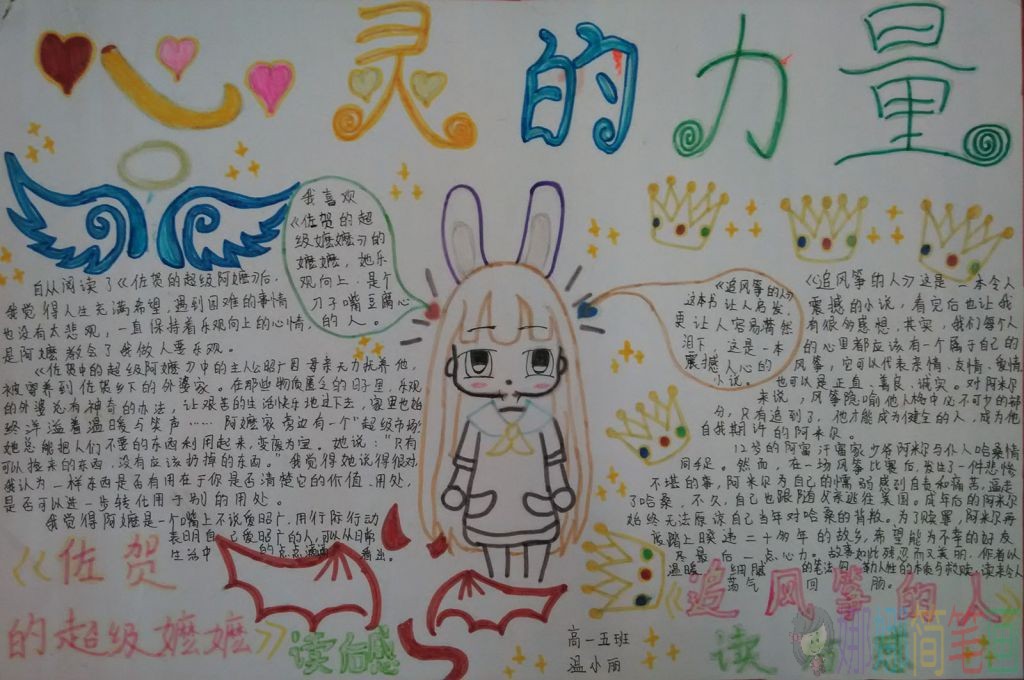 心灵的力量
我喜欢
《佐贺的超
级嬷嬷》的
嬷嬷，她乐
观向上，是个
刀子嘴豆腐心
的人。
《追风筝的人》
这本书让人启发，
更让人容易潸然
泪下，这是一本
震撼人心的
小说。
自从阅读了《佐贺的超级阿嬷》后，
我觉得人生充满希望，遇到困难的事情
也没有太悲观，一直保持着乐观向上的心情，
是阿嬷教会了我做人要乐观。
《佐贺的超级阿嬷》中的主人公昭广因母亲无力抚养他，
被寄养到佐贺乡下的外婆家。在那些物质匮乏的日子里，乐观
的外婆总有神奇的办法，让艰苦的生活快乐地过下去，家里也始
终洋溢着温暖与笑声……阿嬷家旁边有一个“超级市场”
她总能把人们不要的东西利用起来，变废为宝。她说：“只有
可以捡来的东西，没有应该扔掉的东西。”我觉得她说得很对，
我认为一样东西是否有用在于你是否清楚它的价值、用处，
是否可以进一步转化用于别的用处。
我觉得阿嬷是一个嘴上不说爱昭广，用行际行动
表明自己爱昭广的人，可以从日常
生活中的点点滴滴看出。
《追风筝的人》这是一本令人
震撼的小说，看完后也让我
有很多感想，其实，我们每个人
的心里都应该有一个属于自己的
风筝，它可以代表亲情、友情、爱情
也可以是正直、善良、诚实。对阿米尔
来说，风筝隐喻他人格中必不可少的部
分，只有追到了，他才能成为健全的人，成为他
自我期许的阿米尔。
12岁的阿富汗富家少爷阿米尔与仆人哈桑情
同手足。然而，在一场风筝比赛后，发生了一件悲惨
不堪的事，阿米尔为自己的懦弱感到自责和痛苦，逼走
了哈桑，不久，自己也跟随父亲逃往美国。成年后的阿米尔
始终无法原谅自己当年对哈桑的背叛。为了赎罪，阿米尔再
度踏上暌违二十多年的故乡，希望能为不幸的好友
尽最后一点心力。故事如此残忍而又美丽，作者以
温暖细腻的笔法勾勒人性的本质与救赎，读来令人
荡气回肠。
《佐贺
的超级嬷嬷》读后感
高一五班
温小丽
《追风筝的人》
读 感
简笔